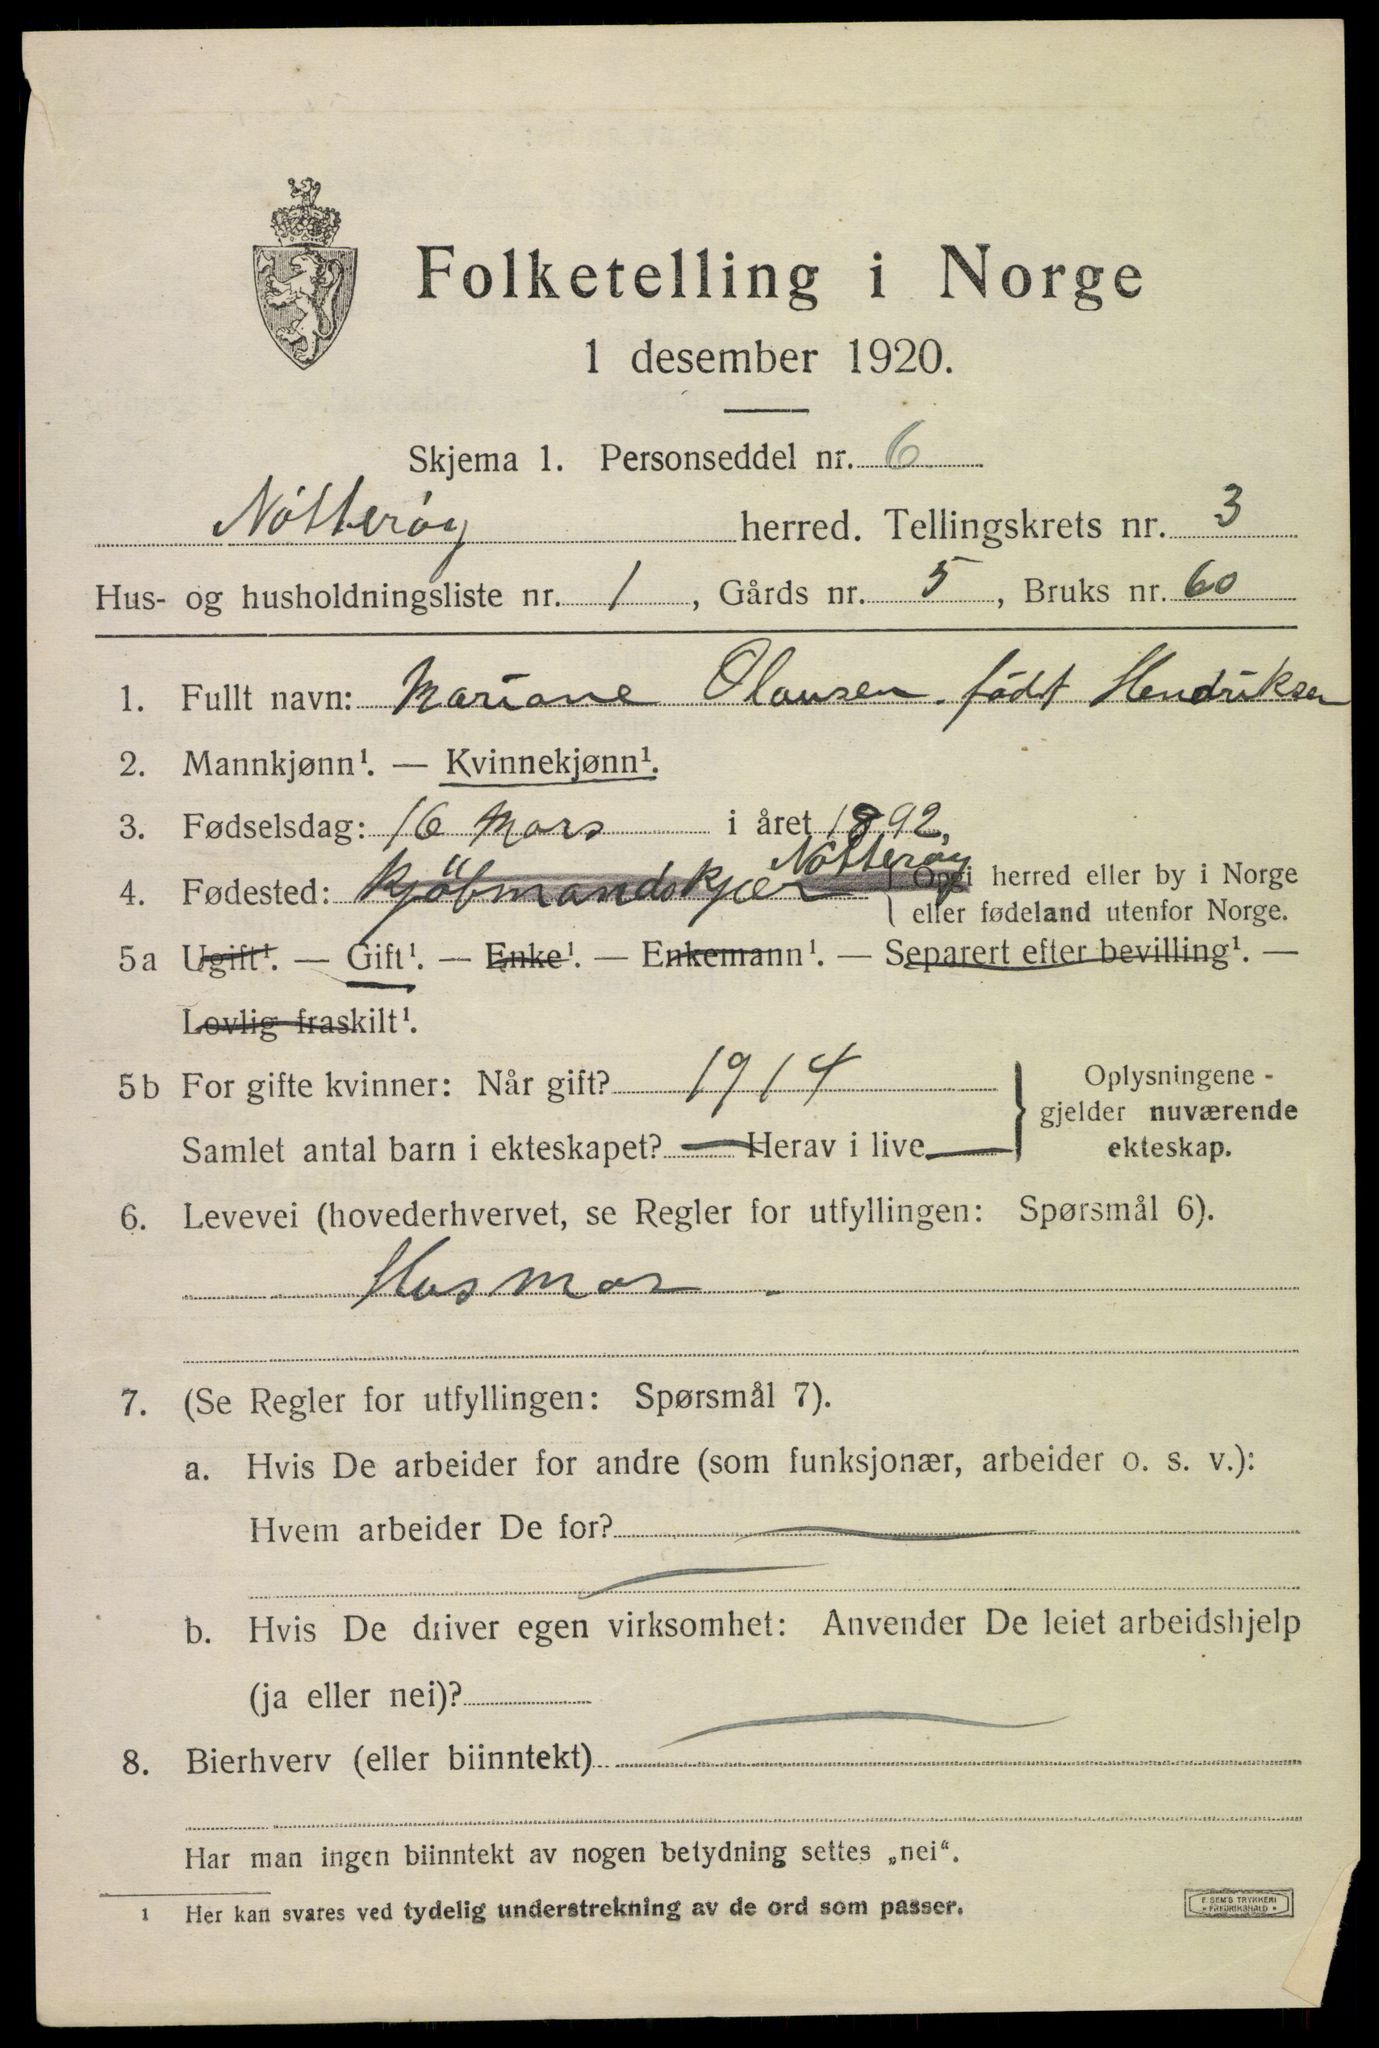 Folketelling i Norge
1 desember 1920.
Skjema 1. Personseddel nr. 6
Nötterøy herred. Tellingskrets nr. 3
Hus- og husholdningsliste nr. 1, Gårds nr. 5, Bruks nr. 60
1. Fullt navn: Mariane Olausen. født Hendriksen
2. Mannkjønn¹. — Kvinnekjønn¹.
3. Fødselsdag: 16 Mars i året 1892,
Nötterøy
4. Fødested: Kjöbmandskjær { Opgi herred eller by i Norge
eller fødeland utenfor Norge.
5a Ugift¹. — Gift¹. — Enke¹. — Enkemann¹. — Separert efter bevilling¹. —
Lovlig fraskilt¹.
5b For gifte kvinner: Når gift? 1914
Samlet antal barn i ekteskapet? — Herav i live —
Oplysningene
gjelder nuværende
ekteskap.
6. Levevei (hovederhvervet, se Regler for utfyllingen: Spørsmål 6).
Husmor
7. (Se Regler for utfyllingen: Spørsmål 7).
a. Hvis De arbeider for andre (som funksjonær, arbeider o. s. v.):
Hvem arbeider De for? —
—
b. Hvis De driver egen virksomhet: Anvender De leiet arbeidshjelp
(ja eller nei)?
8. Bierhverv (eller biinntekt) —
Har man ingen biinntekt av nogen betydning settes „nei“.
1 Her kan svares ved tydelig understrekning av de ord som passer.
E SEM'S TRYKKERI
• FREDRIKSHALD •